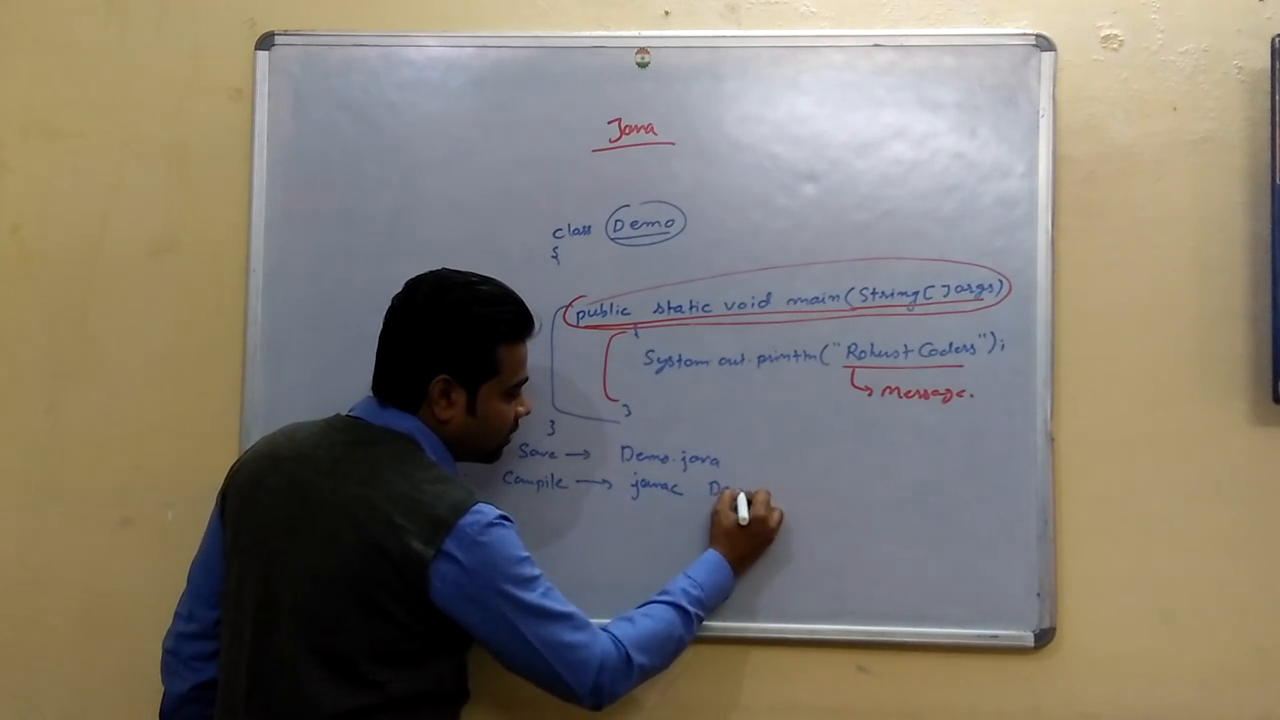 Java
class Demo
{
public static void main(String[]args)
{
System.out.println("Robust Coders");
Message.
}
}
Save → Demo.java
Compile → javac De